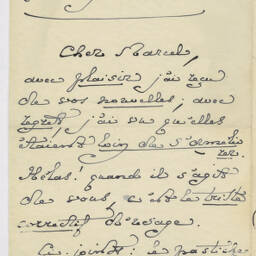 Cher Marcel,
avec plaisir j'ai reçu
de vos nouvelles; avec
regret, j'ai vu qu'elles
étaient loin de s'amélio
rer.
Hélas! quand il s'agit
de vous, c'est le triste
correctif d'usage.
Ci-joint: le pastiche